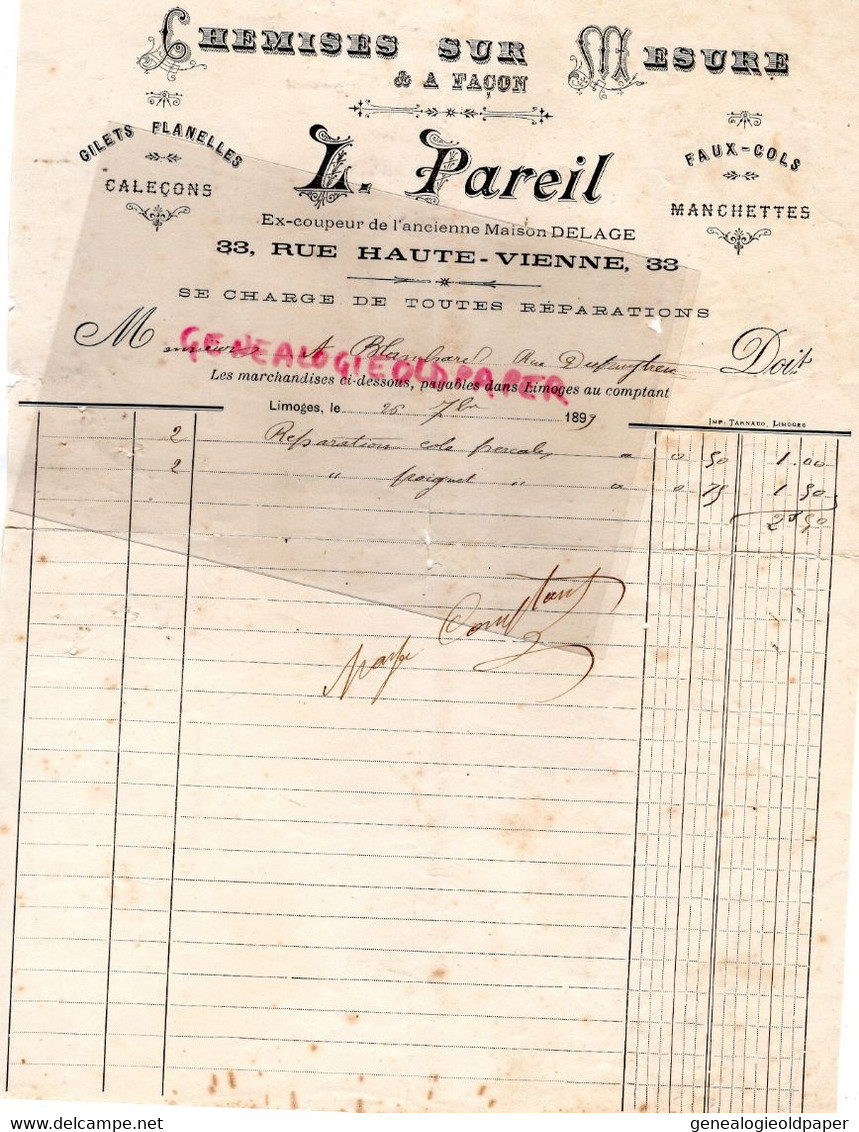 CHEMISES SUR MESURE
& A FAÇON
GILETS FLANELLES
CALEÇONS
L. Pareil
FAUX-COLS
MANCHETTES
Ex-coupeur de l'ancienne Maison DELAGE
33, RUE HAUTE-VIENNE, 33
SE CHARGE DE TOUTES RÉPARATIONS
Monsieur A Blanchard Rue Dupuytren Doit
GENEALOGIEOLDPAPER
Les marchandises ci-dessous, payables dans Limoges au comptant
Limoges, le 26 7bre 1899
IMP. TARNAUD, LIMOGES
2 Reparation cols percale a 0 50 1.00
2 " poignet " a 0 75 1 50
2f50
Comptant
genealogieoldpaper
www.delcampe.net